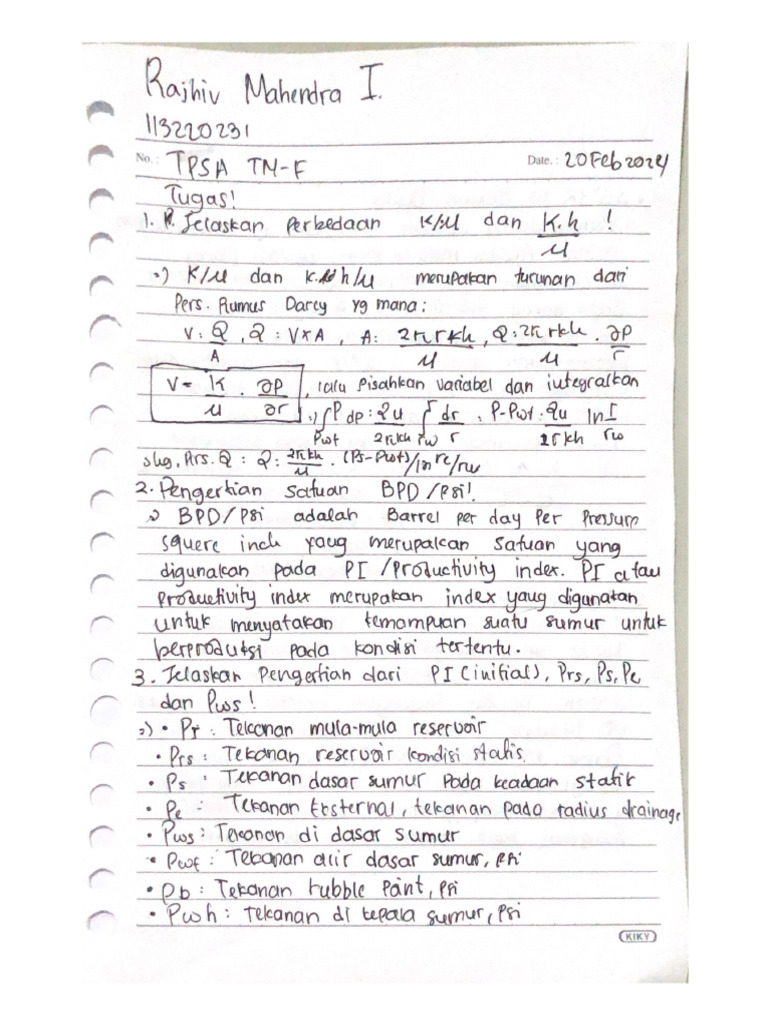 Rajhiv Mahendra I.
113220231
No.: TPSA TM-F Date.: 20 Feb 2024
Tugas!
1. Jelaskan Perbedaan K/μ dan K.h/μ !
=) K/μ dan k.h/μ merupakan turunan dari
Pers. Rumus Darcy yg mana:
V: Q/A, Q: V×A, A: 2π r kh/μ, Q: 2π r kh/μ . ∂P/r
V = K/μ . ∂P/∂r, lalu Pisahkan variabel dan integralkan
=) ∫P Pwf dp: Qu/2πkh ∫r rw dr/r : P-Pwf: Qu/2πkh ln r/rw
shg, Prs. Q: Q: 2πkh/μ . (Ps-Pwf)/ln re/rw
2. Pengertian Satuan BPD/psi!
=) BPD/Psi adalah Barrel per day Per Pressure
squere inch yang merupakan satuan yang
digunakan pada PI/Productivity index. PI atau
Productivity index merupakan index yang digunakan
untuk menyatakan kemampuan suatu sumur untuk
berproduksi pada kondisi tertentu.
3. Jelaskan Pengertian dari PI (initial), Prs, Ps, Pe
dan Pws!
=) • Pr : Tekanan mula-mula reservoir
• Prs : Tekanan reservoir kondisi statis
• Ps : Tekanan dasar sumur pada keadaan statik
• Pe : Tekanan Eksternal, tekanan pada radius drainage
• Pws : Tekanan di dasar sumur
• Pwf : Tekanan alir dasar sumur, psi
• Pb : Tekanan bubble Point, psi
• Pwh : Tekanan di kepala sumur, Psi
KIKY